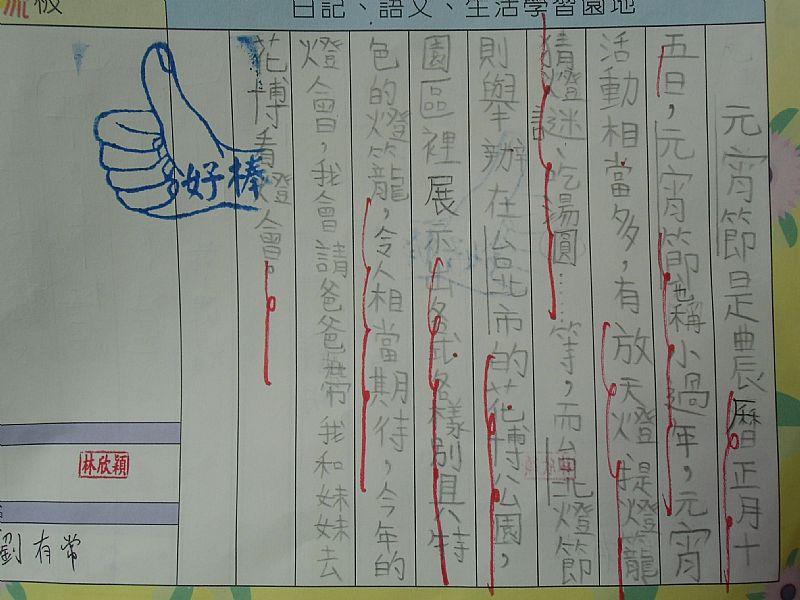 日記、語文、生活學習園地
元宵節是農曆正月十
五日，元宵節也稱小過年，元宵
活動相當多，有放天燈提燈籠
猜燈謎、吃湯圓……等，而台北燈節
則舉辦在台北市的花博公園，
園區裡展示出各式各樣別具特
色的燈籠，令人相當期待，今年的
燈會，我會請爸爸帶我和妹妹去
花博看燈會。
好棒
林欣穎
劉有常